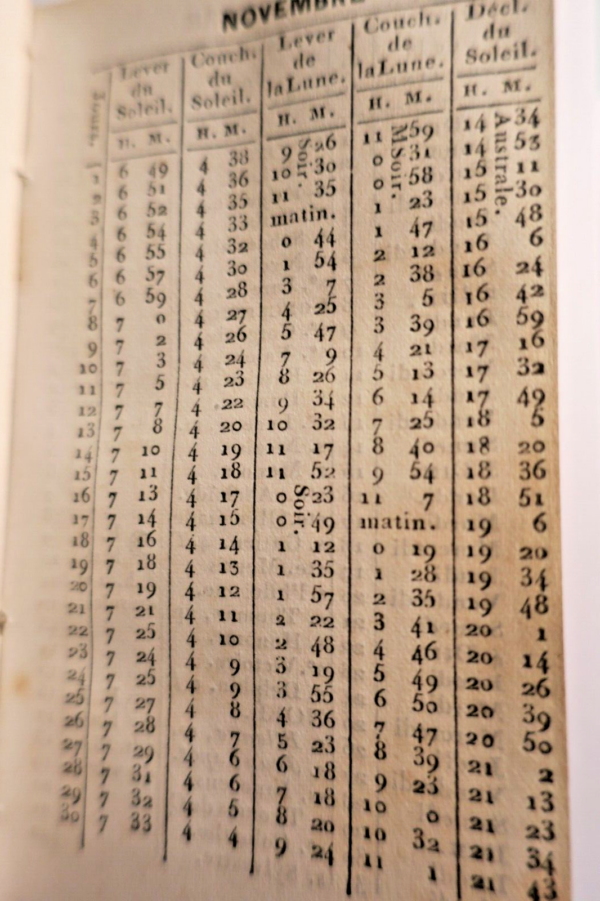 NOVEMBRE
Jours. Lever du Soleil. Couch. du Soleil. Lever de la Lune. Couch. de la Lune. Décl. du Soleil.
H. M. H. M. H. M. H. M. H. M.
1 6 49 4 38 9 Soir. 26 11 MSoir. 59 14 Australe. 34
2 6 51 4 36 10 30 0 31 14 53
3 6 52 4 35 11 35 0 58 15 11
4 6 54 4 33 matin. 1 23 15 30
5 6 55 4 32 0 44 1 47 15 48
6 6 57 4 30 1 54 2 12 16 6
7 6 59 4 28 3 7 2 38 16 24
8 7 0 4 27 4 25 3 5 16 42
9 7 2 4 26 5 47 3 39 16 59
10 7 3 4 24 7 9 4 21 17 16
11 7 5 4 23 8 26 5 13 17 32
12 7 7 4 22 9 34 6 14 17 49
13 7 8 4 20 10 32 7 25 18 5
14 7 10 4 19 11 17 8 40 18 20
15 7 11 4 18 11 52 9 54 18 36
16 7 13 4 17 0 Soir. 23 11 7 18 51
17 7 14 4 15 0 49 matin. 19 6
18 7 16 4 14 1 12 0 19 19 20
19 7 18 4 13 1 35 1 28 19 34
20 7 19 4 12 1 57 2 35 19 48
21 7 21 4 11 2 22 3 41 20 1
22 7 25 4 10 2 48 4 46 20 14
23 7 24 4 9 3 19 5 49 20 26
24 7 25 4 9 3 55 6 50 20 39
25 7 27 4 8 4 36 7 47 20 50
26 7 28 4 7 5 23 8 39 21 2
27 7 29 4 6 6 18 9 23 21 13
28 7 31 4 6 7 18 10 0 21 23
29 7 32 4 5 8 20 10 32 21 34
30 7 33 4 4 9 24 11 1 21 43